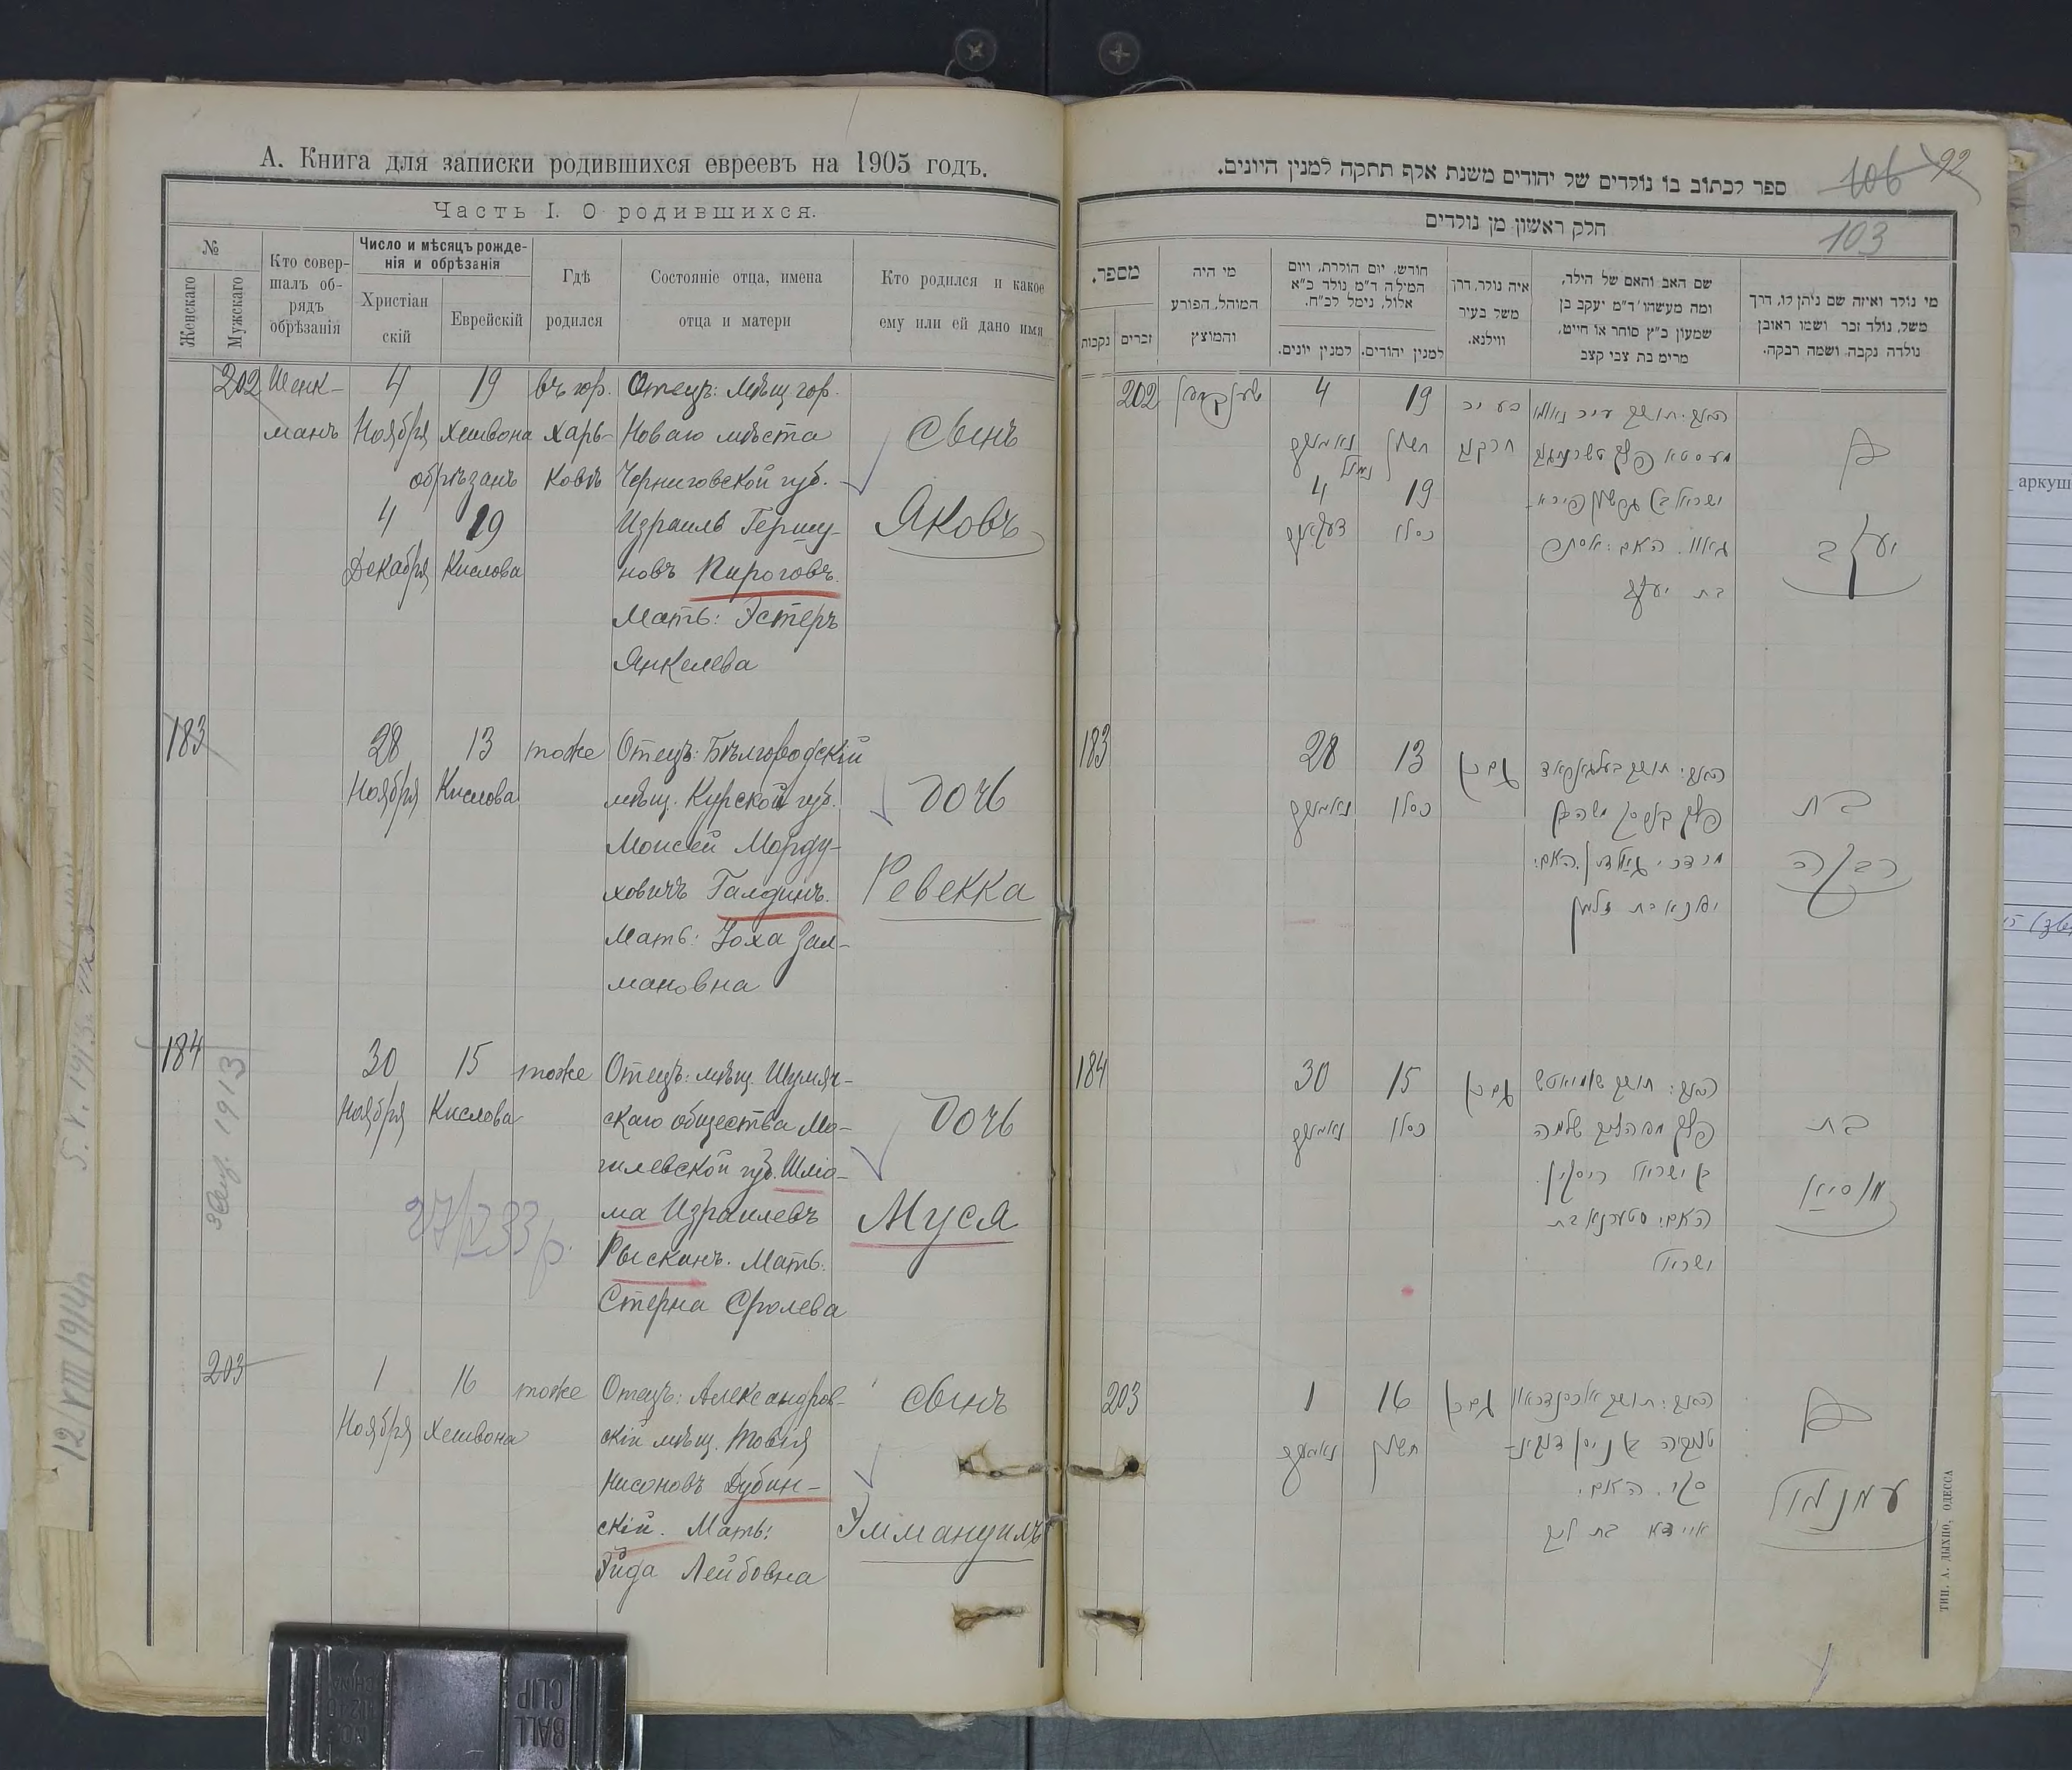 А. Книга для записки родившихся евреевъ на 1905 годъ.
Часть I. О родившихся.
№
Женскаго
Мужскаго
Кто совер-
шалъ об-
рядъ
обрѣзанія
Число и мѣсяцъ рожде-
нія и обрѣзанія
Христіан
скій
Еврейскій
Гдѣ
родился
Состояніе отца, имена
отца и матери
Кто родился и какое
ему или ей дано имя
202
Шенк-
манъ
4
Ноября
19
Хешвона
обрѣзанъ
4
Декабря
19
Кислова
въ гор.
Харь-
ковѣ
Отецъ: мѣщ. гор.
Новаго мѣста
Черниговской губ.
Израиль Гершу-
новъ Пироговъ.
Мать: Эстеръ
Янкелева
сынъ
Яковъ
183
28
Ноября
13
Кислова
тоже
Отецъ: Бѣлгородскій
мѣщ. Курской губ.
Моисей Морду-
ховичъ Галдинъ.
Мать: Зал-
мановна
дочь
Ревекка
184
30
Ноября
15
Кислова
тоже
Отецъ: мѣщ. Шумяч-
скаго общества Мо-
гилевской губ. Шлio-
ма Израилевъ
Рыскинъ. Мать:
Стерна Сролева
дочь
Муся
203
1
Ноября
16
Хешвона
тоже
Отецъ: Александров-
скій мѣщ. Товія
Нисоновъ Дубин-
скій. Мать:
Эйда Лейбовна
сынъ
Эммануилъ
5. V. 1913г.
12/VIII 1914г
1913
ספר לכתוב בו נולדים של יהודים משנת אלף תתקה למנין היונים.
106
92
103
חלק ראשון מן נולדים
מספר.
נקבות
זכרים
מי היה
המוהל, הפורע
והמוצץ
חודש, יום הולדת, ויום
המילה ד"מ נולד כ"א
אלול, נימל לכ"ח.
למנין יונים.
למנין יהודים.
איה נולד, דרך
משל בעיר
ווילנא.
שם האב והאם של הילד,
ומה מעשהו ד"מ יעקב בן
שמעון כ"ץ סוחר או חייט,
מרים בת צבי קצב
מי נולד ואיזה שם ניתן לו, דרך
משל, נולד זכר ושמו ראובן
נולדה נקבה ושמה רבקה.
202
שענקמאן
4
19
חשון
נימול
4
19
כסלו
בעיר
חרקוב
האב: תושב עיר
האם: אסתר
בת יעקב
בן
יעקב
183
28
13
כסלו
גם כן
האב: תושב
פלך קורסק משה בן
מרדכי גאלדין. האם:
בת זלמן
בת
רבקה
184
30
15
כסלו
גם כן
האב: תושב
פלך שלמה
בן ישראל ריסקין.
האם: סטערנא בת
ישראל
בת
מוסיא
203
1
16
חשון
גם כן
האב: תושב
טוביה בן ניסן דובינ-
סקי. האם:
איידא בת ליב
בן
עמנואל
ТИП. А. ДЫХНО, ОДЕССА
аркуш
BALL
CLIP